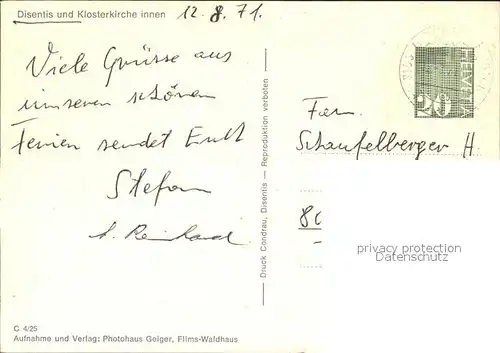 Disentis und Klosterkirche innen
12.8.71.
Viele Grüsse aus
unseren schönen
Ferien sendet Euch
Stefan
Reinhard
Druck Condrau, Disentis — Reproduktion verboten
HELVETIA
20
Fam.
Schaufelberger H.
80
privacy protection
Datenschutz
C 4/25
Aufnahme und Verlag: Photohaus Geiger, Flims-Waldhaus